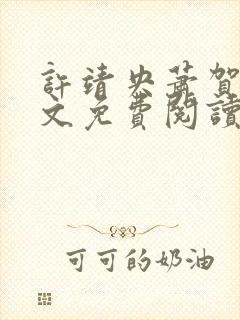 許靖央蕭賀
文免費閱讀
可可的奶油